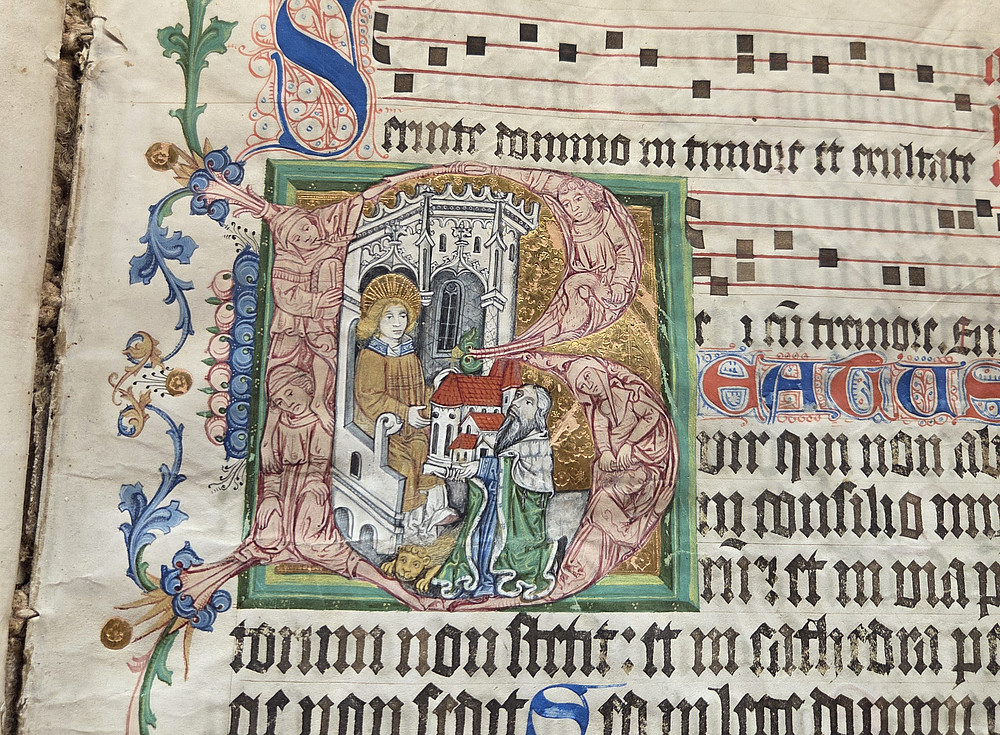 Seruite domino in timore et exultate
ei cū tremore. Eu
BEATUS
uir qui non ab
in consilio im
et in uia p
torum non stetit : et in cathedra pe
non sedit Sed in lege domini